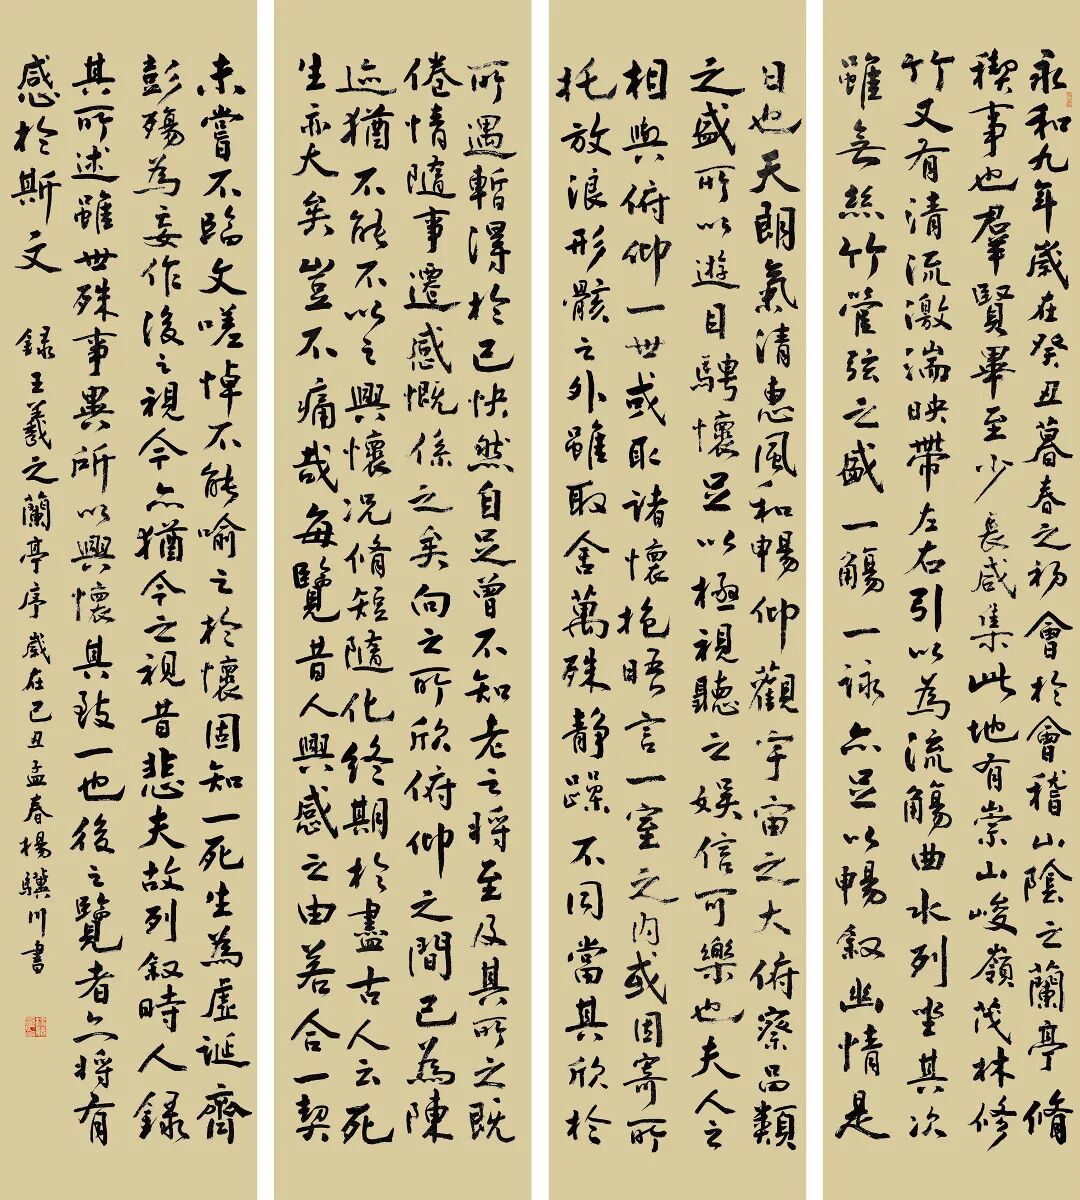 永和九年歲在癸丑暮春之初會於會稽山陰之蘭亭脩
禊事也群賢畢至少長咸集此地有崇山峻嶺茂林修
竹又有清流激湍映帶左右引以為流觴曲水列坐其次
雖無絲竹管弦之盛一觴一詠亦足以暢敘幽情是
日也天朗氣清惠風和暢仰觀宇宙之大俯察品類
之盛所以遊目騁懷足以極視聽之娛信可樂也夫人之
相與俯仰一世或取諸懷抱晤言一室之內或因寄所
托放浪形骸之外雖取舍萬殊靜躁不同當其欣於
所遇暫得於己快然自足曾不知老之將至及其所之既
倦情隨事遷感慨係之矣向之所欣俯仰之間已為陳
迹猶不能不以之興懷況脩短隨化終期於盡古人云死
生亦大矣豈不痛哉每覽昔人興感之由若合一契
未嘗不臨文嗟悼不能喻之於懷固知一死生為虛誕齊
彭殤為妄作後之視今亦猶今之視昔悲夫故列敘時人錄
其所述雖世殊事異所以興懷其致一也後之覽者亦將有
感於斯文 錄王羲之蘭亭序歲在己丑孟春楊驥川書